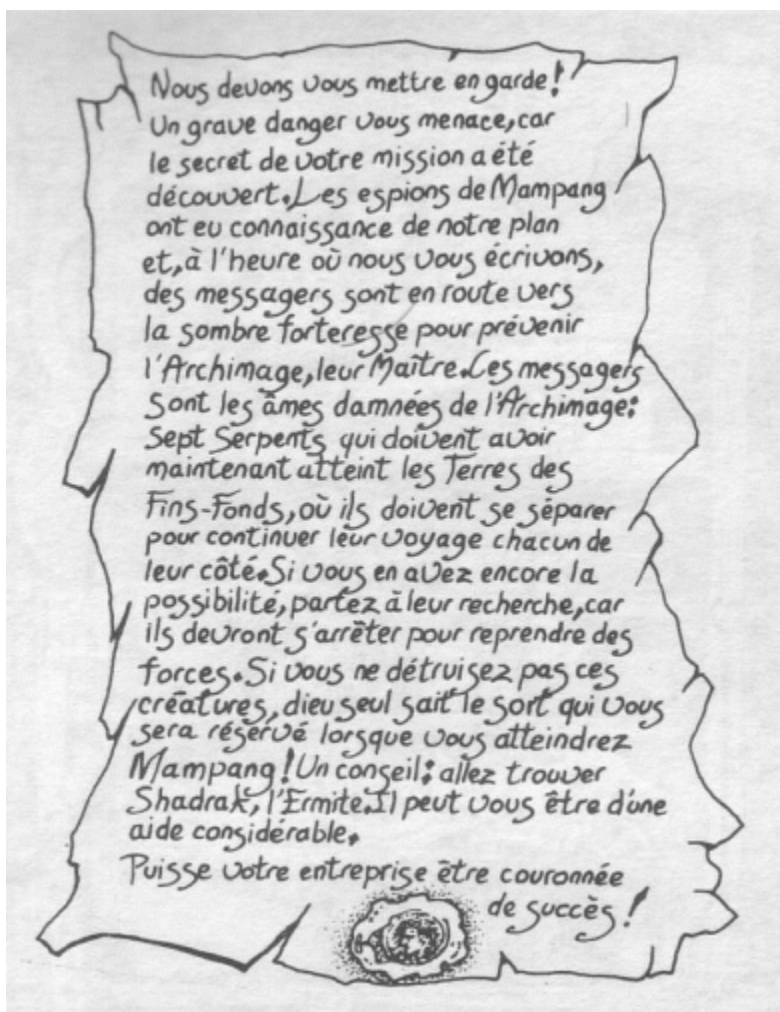 Nous devons vous mettre en garde!
Un grave danger vous menace, car
le secret de votre mission a été
découvert. Les espions de Mampang
ont eu connaissance de notre plan
et, à l'heure où nous vous écrivons,
des messagers sont en route vers
la sombre forteresse pour prévenir
l'Archimage, leur Maître. Ces messagers
sont les âmes damnées de l'Archimage:
Sept Serpents qui doivent avoir
maintenant atteint les Terres des
Fins-Fonds, où ils doivent se séparer
pour continuer leur voyage chacun de
leur côté. Si vous en avez encore la
possibilité, partez à leur recherche, car
ils devront s'arrêter pour reprendre des
forces. Si vous ne détruisez pas ces
créatures, dieu seul sait le sort qui vous
sera réservé lorsque vous atteindrez
Mampang! Un conseil: allez trouver
Shadrak, l'Ermite. Il peut vous être d'une
aide considérable.
Puisse votre entreprise être couronnée
de succès!